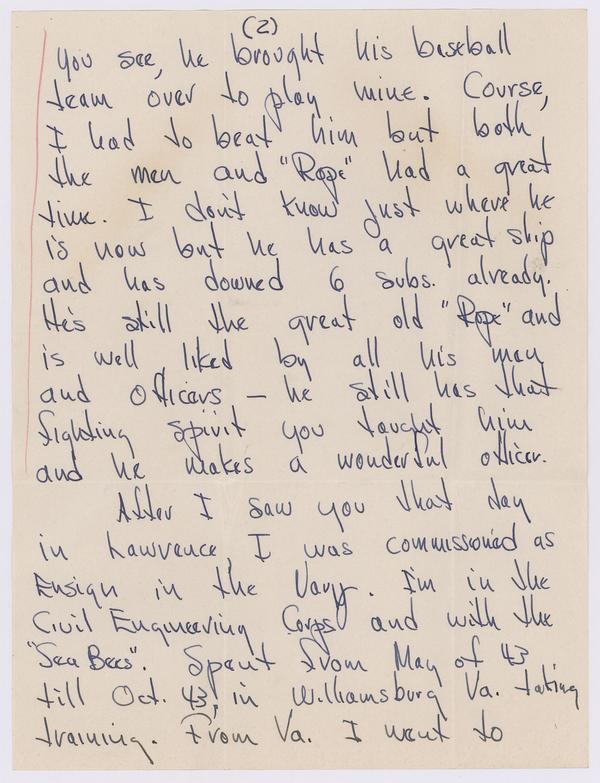 (2)
You see, he brought his baseball
team over to play mine. Course,
I had to beat him but both
the men and "Rope" had a great
time. I don't know just where he
is now but he has a great ship
and has downed 6 subs. already.
He's still the great old "Rope" and
is well liked by all his men
and Officers – he still has that
fighting spirit you taught him
and he makes a wonderful officer.
After I saw you that day
in Lawrence, I was commissioned as
Ensign in the Navy. I'm in the
Civil Engineering Corps and with the
"Sea Bees". Spent from May of 43
till Oct. 43, in Williamsburg Va. taking
training. From Va. I went to